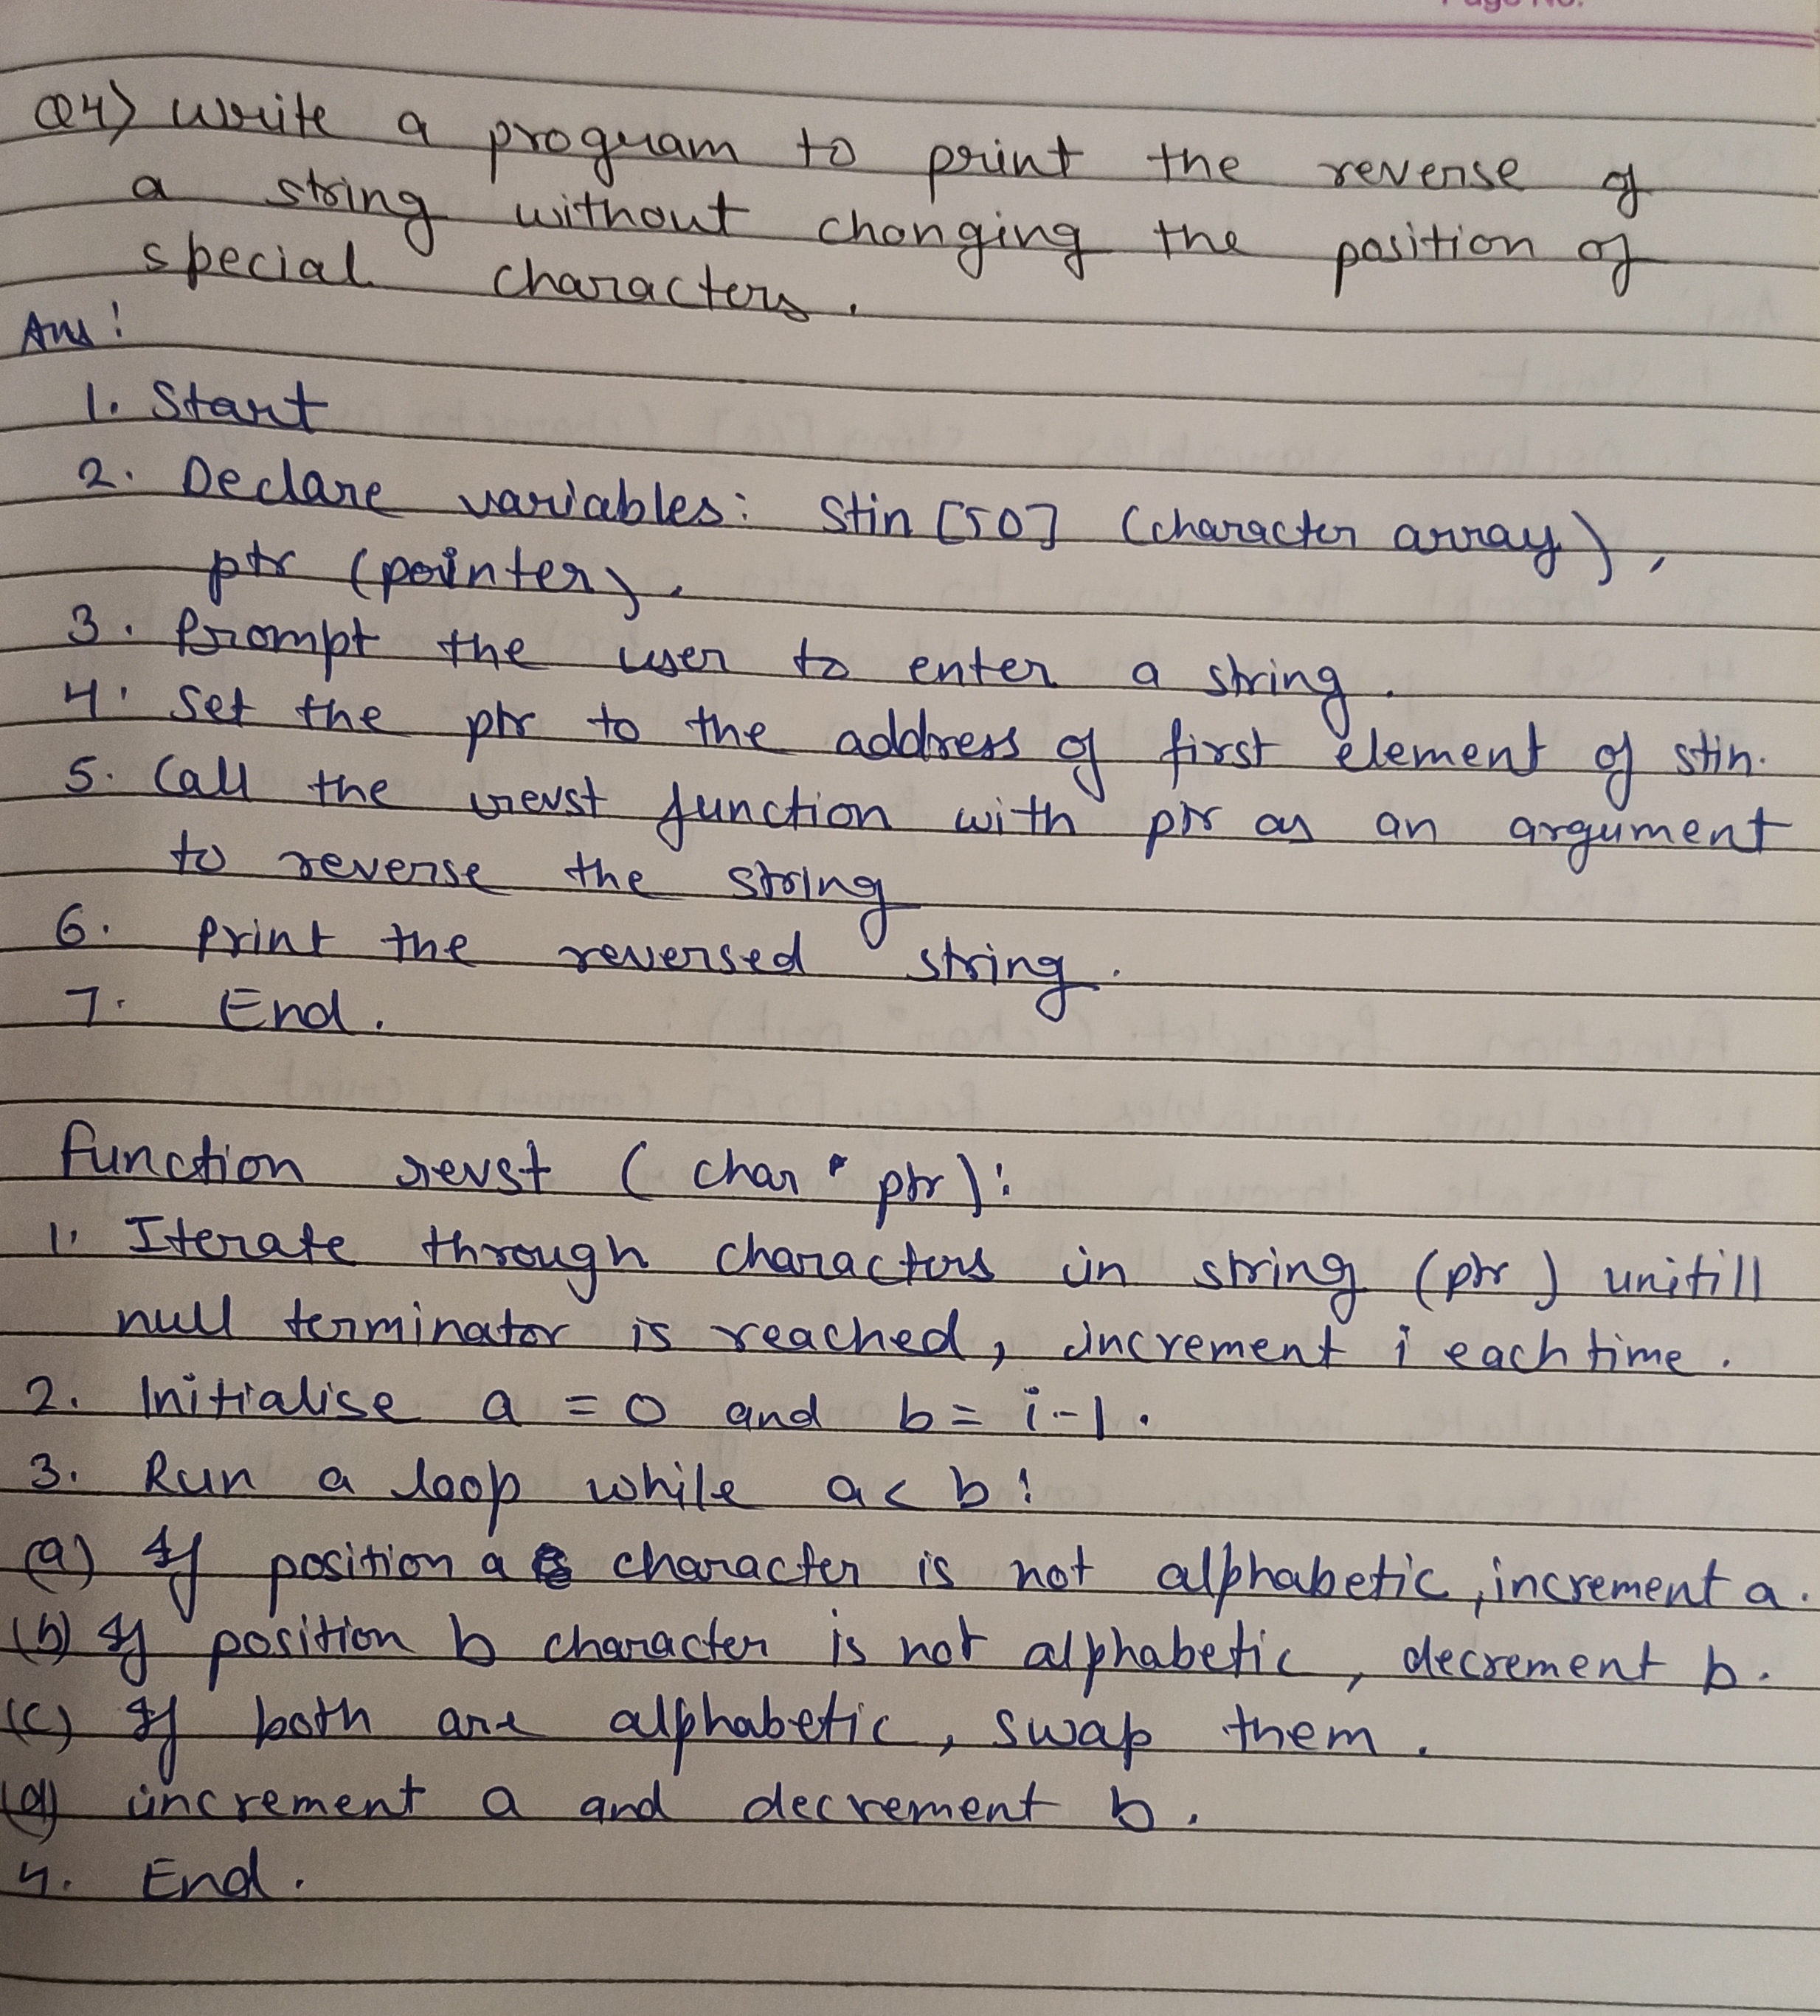 Page No.
Q4) Write a program to print the reverse of
a string without changing the position of
special characters.
Ans:
1. Start
2. Declare variables: stin [50] (character array),
ptr (pointer).
3. Prompt the user to enter a string.
4. Set the ptr to the address of first element of stin.
5. Call the revst function with ptr as an argument
to reverse the string
6. Print the reversed string.
7. End.
Function revst (char * ptr):
1. Iterate through characters in string (ptr) unitill
null terminator is reached, increment i each time.
2. Initialise a = 0 and b = i-1.
3. Run a loop while a < b:
(a) If position a character is not alphabetic, increment a.
(b) If position b character is not alphabetic, decrement b.
(c) If both are alphabetic, swap them.
(d) increment a and decrement b.
4. End.